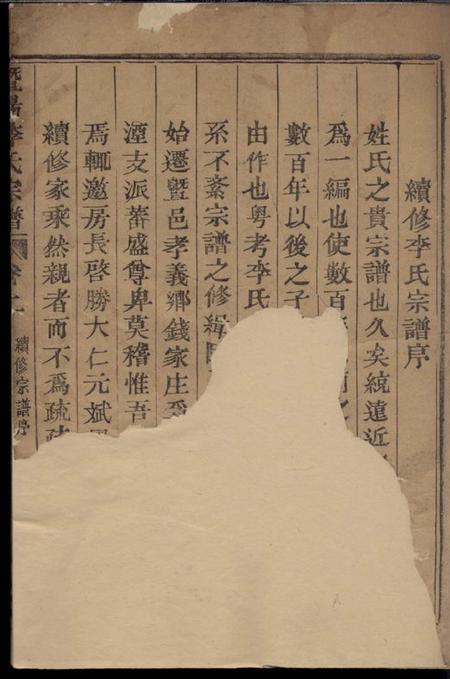 續修李氏宗譜序
姓氏之貴宗譜也久矣統遠近
爲一編也使數百
數百年以後之子
由作也粤考李氏
系不紊宗譜之修緝
始遷暨邑孝義鄉錢家庄爲
湮支派蕃盛尊卑莫稽惟吾
焉輒邀房長啓勝大仁元斌
續修家乘然親者而不爲疏
暨陽李氏宗譜
續修宗譜序